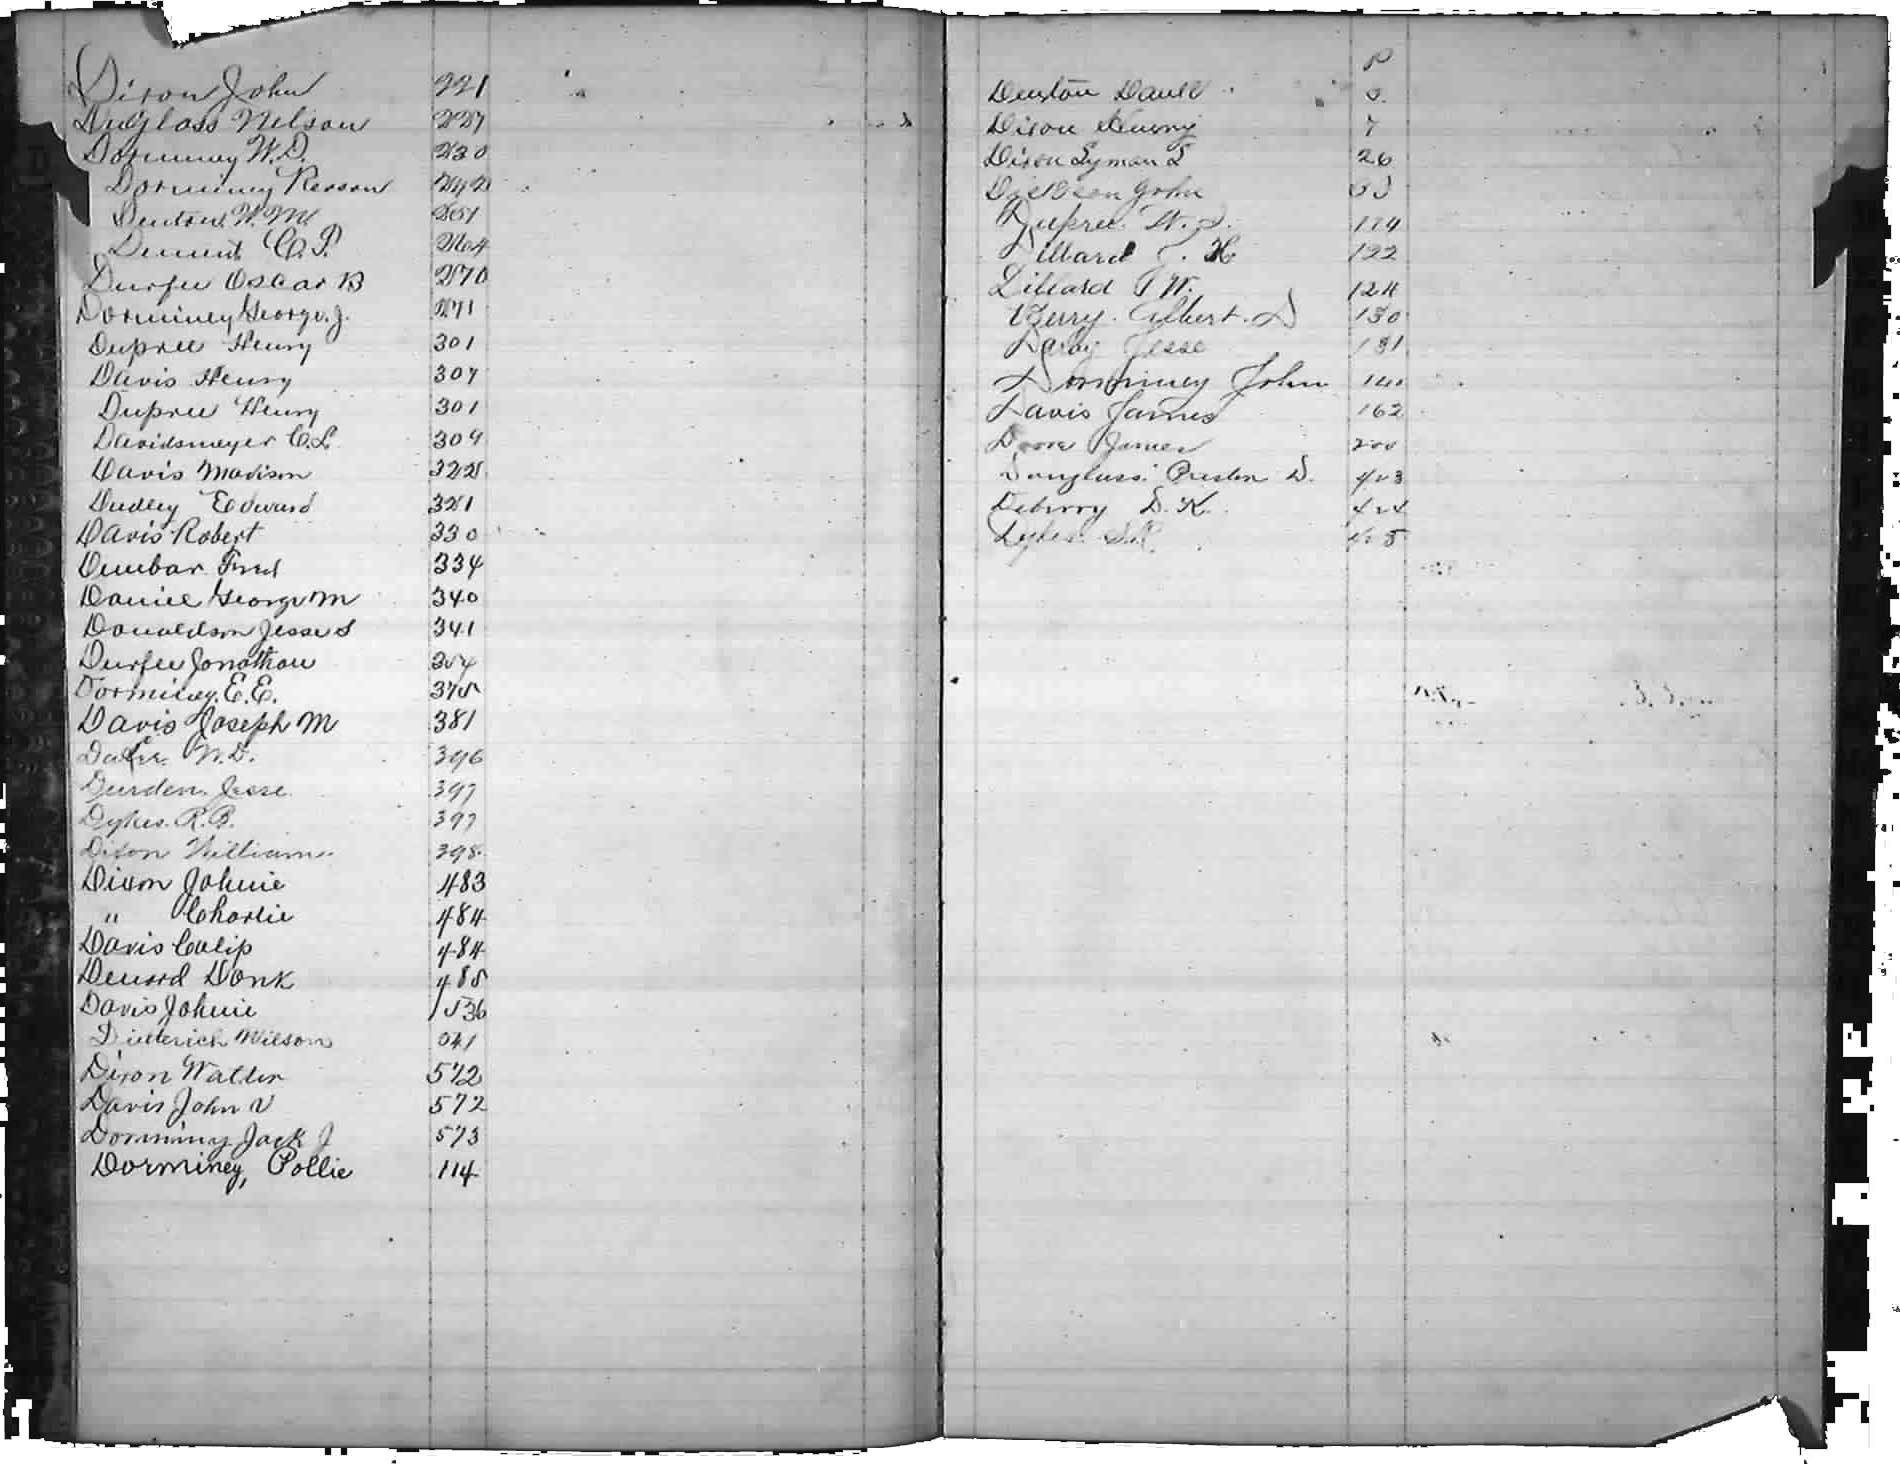 Dixon John 221
Duglass Nelson 227
Dorminey W.D. 230
Dorminey Reason 242
Denton W.M. 251
Dement C.P. 264
Durfee Oscar B 270
Dorminey George J. 271
Dupree Henry 301
Davis Henry 307
Dupree Henry 301
Davidsmeyer C.L. 309
Davis Madison 322
Dudley Edward 321
Davis Robert 330
Dunbar Fred 334
Daniel George M 340
Donaldson Jesse S 341
Durfee Jonathan
Dorminey E.E. 375
Davis Joseph M 381
W.D. 396
Durden Jesse 397
Dykes R.B. 397
Dixon William 398
Dixon Johnie 483
" Charlie 484
Davis Calip 484
Denard Donk 485
Davis Johnie 536
Dietterich Wilson 541
Dixon Walter 572
Davis John V 572
Dorminy Jack J 573
Dorminey, Pollie 114
P
Denton
Dixon Henry 7
Dixon Lyman L 26
John
Dupree W.D. 119
Dillard J. H 122
Dillard W. 124
Berry Albert D 130
Darby Jesse 131
Dorminey John 141
Davis James 162
James 200
Douglass Preston D. 423
Deberry D.K. 424
Dykes 425